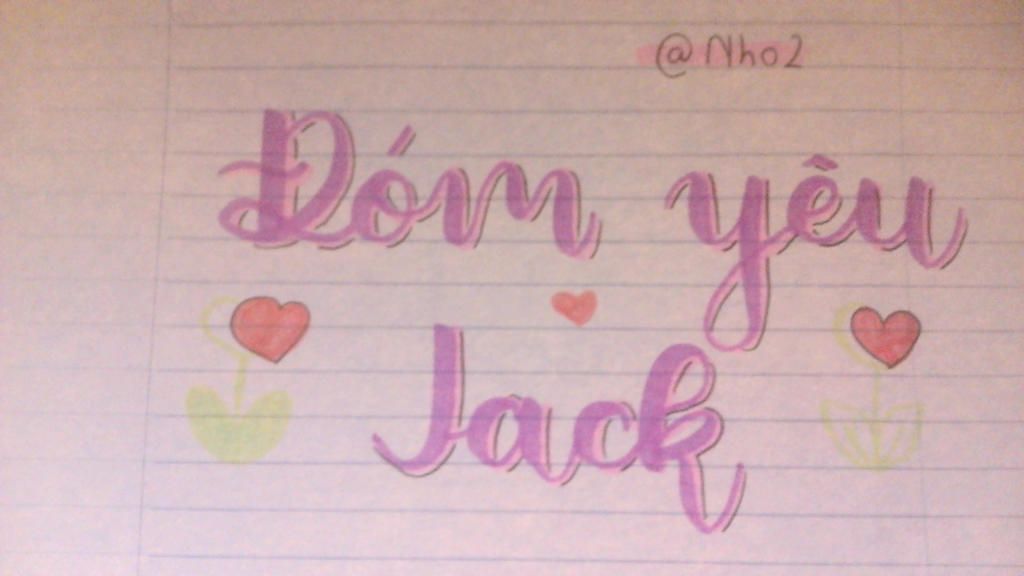 @Nho2
Đóm yêu
Jack